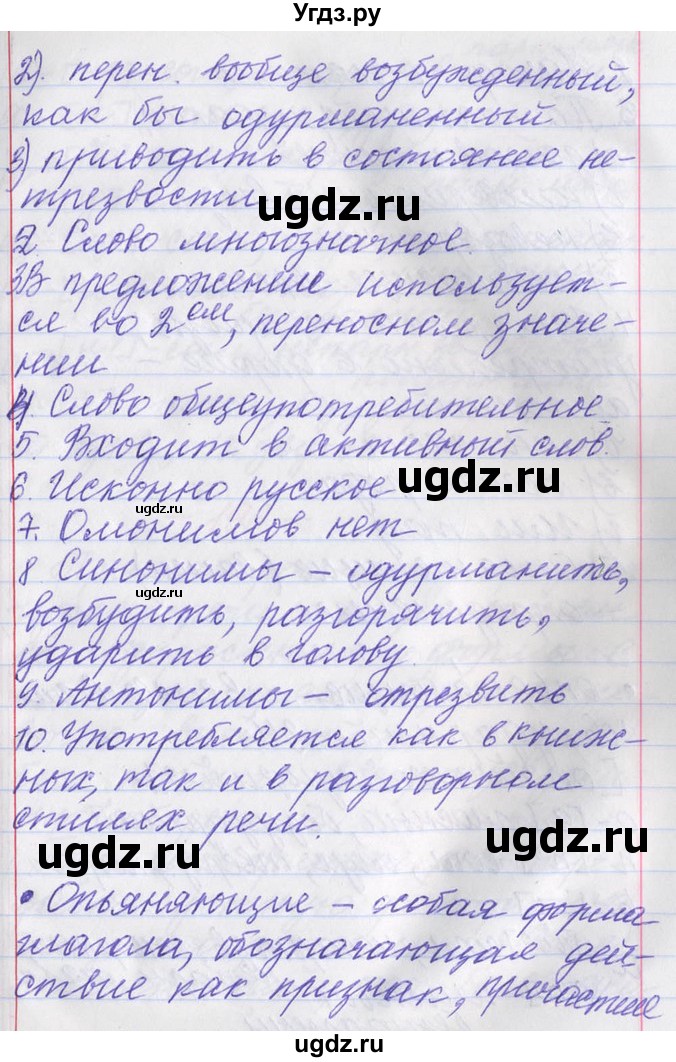 Угдз.ру
2). перен. вообще возбужденный,
как бы одурманенный
3) приводить в состояние не-
трезвости
ugdz.ru
2. Слово многозначное.
3В предложение используст-
ся во 2ом, переносном значе-
нии
ugdz.ru
4. Слово общеупотребительное
5. Входит в активный слов.
6. Исконно русское
ugdz.ru
7. Омонимов нет
8 Синонимы – одурманить,
ugdz.ru
возбудить, разгорячить,
ударить в голову.
9. Антонимы – отрезвить
10. Употребляется как в книж-
ных, так и в разговорном
стилях речи.
ugdz.ru
ugdz.ru
• Опьяняющие – особая форма
глагола, обозначающая дей-
ствие как признак, причастие
ugdz.ru